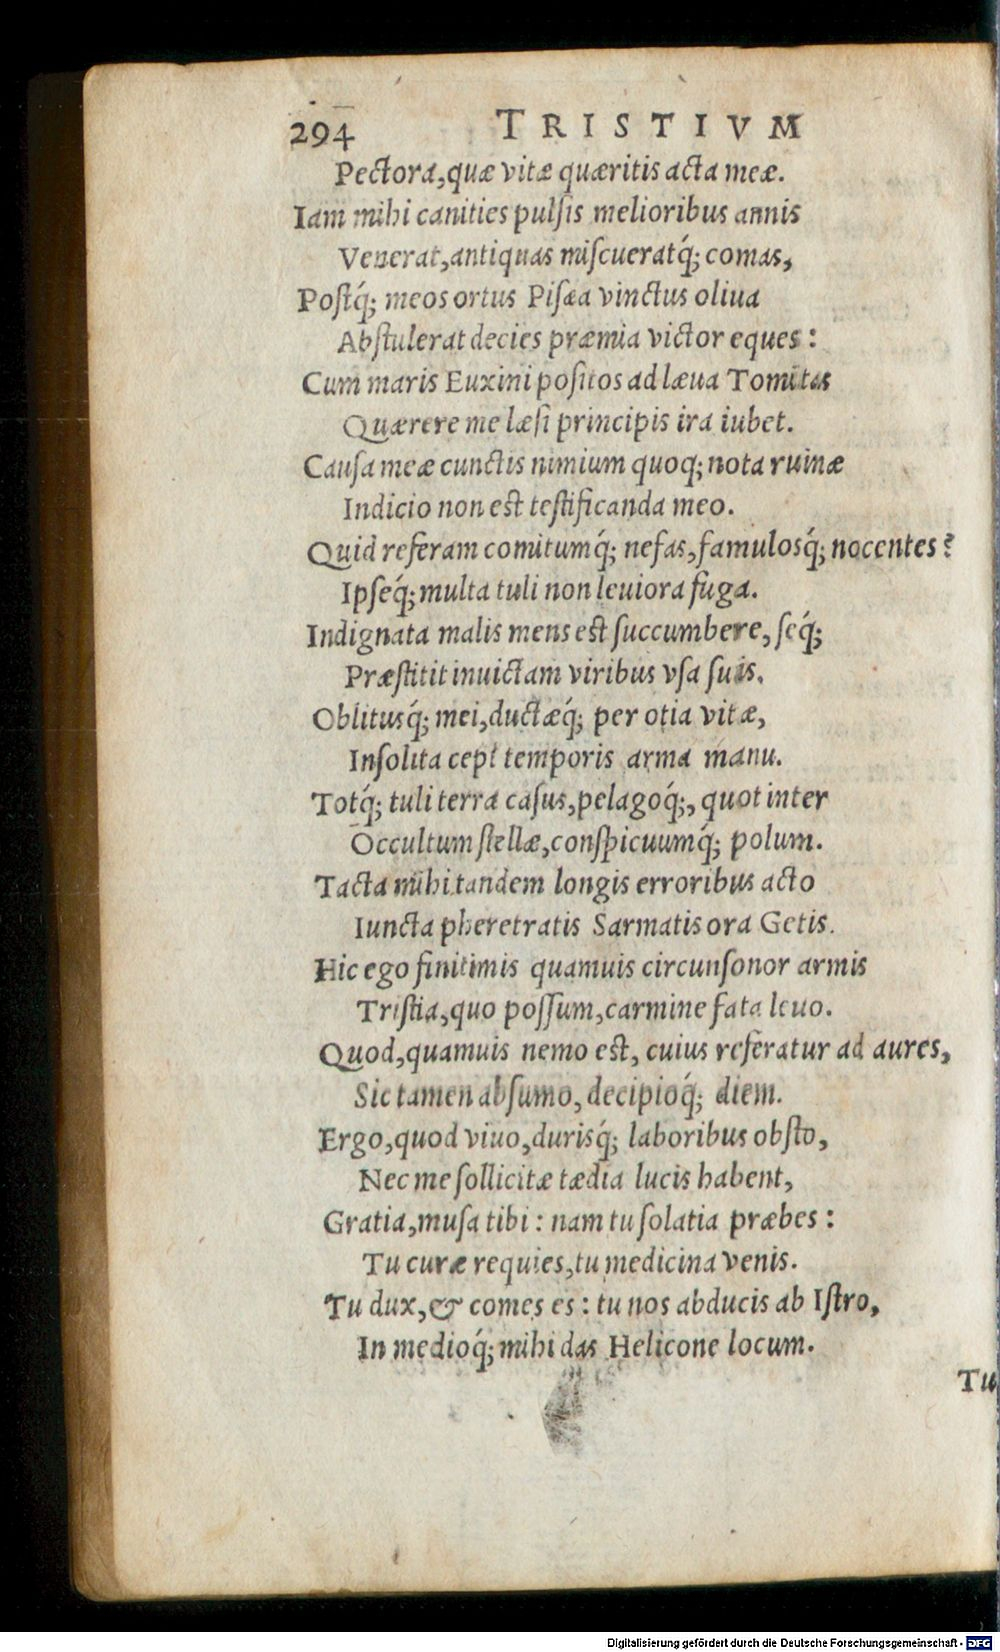 294 TRISTIVM
Pectora, quæ vitæ quæritis acta meæ.
Iam mihi canities pulſis melioribus annis
Venerat, antiquas miſcueratq́; comas,
Poſtq́; meos ortus Piſæa vinctus oliua
Abſtulerat decies præmia victor eques:
Cum maris Euxini poſitos ad læua Tomitas
Quærere me læſi principis ira iubet.
Cauſa meæ cunctis nimium quoq; nota ruinæ
Indicio non est teſtificanda meo.
Quid referam comitumq́; nefas, famulosq́; nocentes?
Ipſeq́; multa tuli non leuiora fuga.
Indignata malis mens est ſuccumbere, ſeq́;
Præſtitit inuictam viribus vſa ſuis.
Oblitusq́; mei, ductæq́; per otia vitæ,
Inſolita cepi temporis arma manu.
Totq́; tuli terra caſus, pelagoq́;, quot inter
Occultum ſtellæ, conſpicuumq́; polum.
Tacta mihi tandem longis erroribus acto
Iuncta pheretratis Sarmatis ora Getis.
Hic ego finitimis quamuis circunſonor armis
Triſtia, quo poſſum, carmine fata leuo.
Quod, quamuis nemo est, cuius referatur ad aures,
Sic tamen abſumo, decipioq́; diem.
Ergo, quod viuo, durisq́; laboribus obſto,
Nec me ſollicitæ tædia lucis habent,
Gratia, muſa tibi: nam tu ſolatia præbes:
Tu curæ requies, tu medicina venis.
Tu dux, & comes es: tu nos abducis ab Iſtro,
In medioq́; mihi das Helicone locum.
Tu
Digitalisierung gefördert durch die Deutsche Forschungsgemeinschaft - DFG